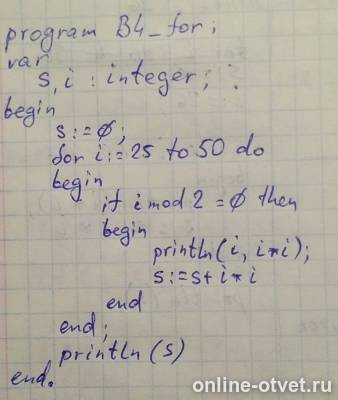 program B4_for;
var
s, i : integer;
begin
s:=0;
for i:=25 to 50 do
begin
if i mod 2 = 0 then
begin
println(i, i*i);
s:=s+i*i
end
end;
println(s)
end.
online-otvet.ru